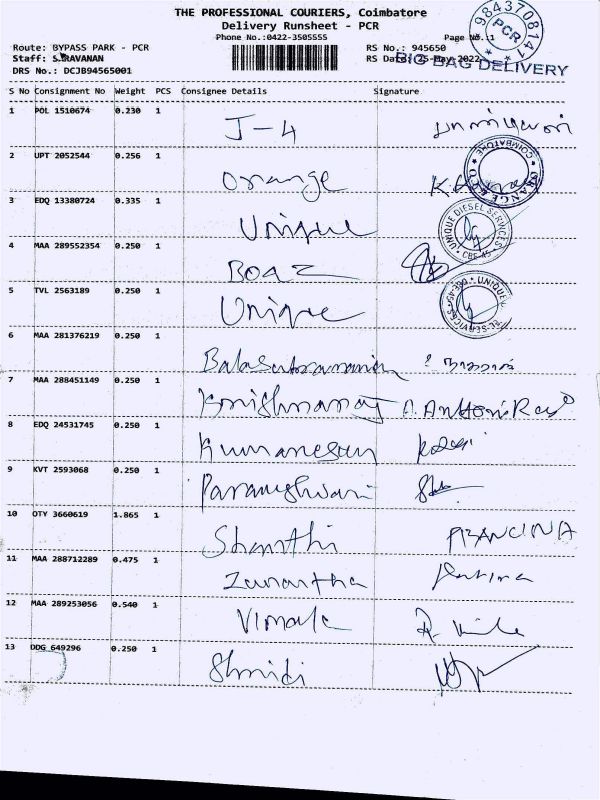 THE PROFESSIONAL COURIERS, Coimbatore
Delivery Runsheet - PCR
Phone No.:0422-3505555
Page No.:1
Route: BYPASS PARK - PCR
RS No.: 945650
Staff: SARAVANAN
RS Date: 25-May-2022
DRS No.: DCJB94565001
9843708141
PCR
BIG BAG DELIVERY
S No Consignment No Weight PCS Consignee Details Signature
1 POL 1510674 0.230 1 J-4
2 UPT 2052544 0.256 1 Orange
COIMBATORE
3 EDQ 13380724 0.335 1 Unique
UNIQUE DIESEL SERVICES
4 MAA 289552354 0.250 1 BOAZ
5 TVL 2563189 0.250 1 Unique
6 MAA 281376219 0.250 1 Balasubramanian
7 MAA 288451149 0.250 1 Krishnaraj A. Antoni Raj
8 EDQ 24531745 0.250 1 Kumaresun
9 KVT 2593068 0.250 1 Parameshwari
10 OTY 3660619 1.865 1 Shanthi
11 MAA 288712289 0.475 1
12 MAA 289253056 0.540 1 Vimala
13 DDG 649296 0.250 1